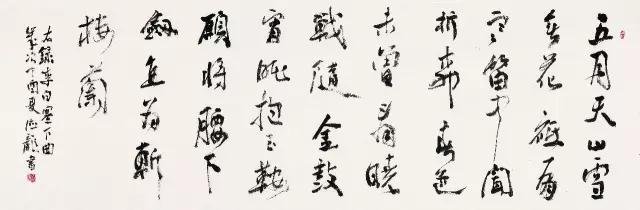 五月天山雪
無花祇有
寒笛中聞
折柳春色
未曾看曉
戰隨金鼓
宵眠抱玉鞍
願將腰下
劍直為斬
樓蘭
右錄李白塞下曲
歲次丁酉夏書